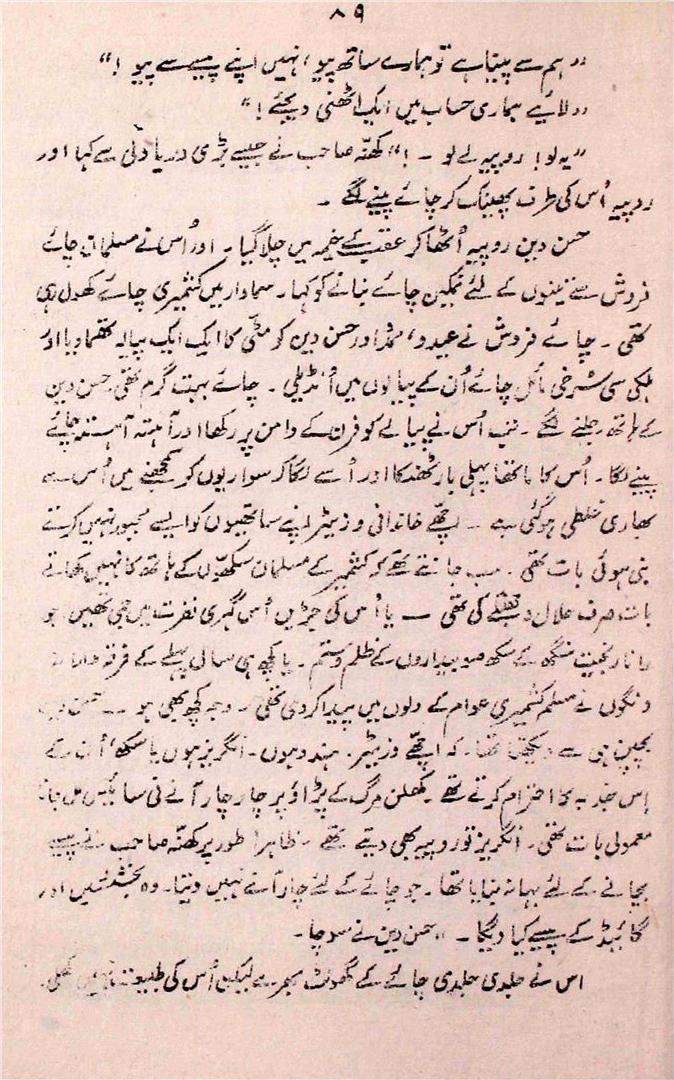 ۸۹
”ہم سے پینا ہے تو ہمارے ساتھ پیو، نہیں اپنے پیسے سے پیو!“
”لائیے ہماری حساب میں ایک اٹھنی دیجئے!“
”یہ لو! روپیہ لے لو ۔ !“ کھنّہ صاحب نے جیسے بڑی دریا دلی سے کہا اور
روپیہ اُس کی طرف پھینک کر چائے پینے لگے ۔
حسن دین روپیہ اُٹھا کر عقب کے خیمہ میں چلا گیا ۔ اور اُس نے مسلمان چائے
فروش سے تینوں کے لئے نمکین چائے بنانے کو کہا ۔ سماوار میں کشمیری چائے کھول رہی
تھی ۔ چائے فروش نے عیدو، محمد اور حسن دین کو مٹی کا ایک ایک پیالہ تھما دیا اور
ہلکی سی سُرخی مائل چائے اُن کے پیالوں میں اُنڈیلی ۔ چائے بہت گرم تھی حسن دین
کے ہاتھ جلنے لگے ۔ تب اُس نے پیالے کو فرن کے دامن پر رکھا اور آہستہ آہستہ چائے
پینے لگا ۔ اُس کا ماتھا پہلی بار ٹھنکا اور اُسے لگا کہ سواریوں کو سمجھنے میں اُس سے
بھاری غلطی ہو گئی ہے ۔ اچھّے خاندانی وزیٹر اپنے ساتھیوں کو ایسے مجبور نہیں کرتے
بنی ہوئی بات تھی ۔ سب جانتے تھے کہ کشمیر کے مسلمان سکھوں کے ہاتھ کا نہیں کھاتے
بات صرف حلال و جھٹکے کی تھی — یا اُس کی جڑیں اُس گہری نفرت میں جمی تھیں جو
مہاراجہ رنجیت سنگھ کے سکھ صوبیداروں کے ظلم و ستم ۔ یا کچھ ہی سال پہلے کے فرقہ وارانہ
دنگوں نے مسلم کشمیری عوام کے دلوں میں پیدا کر دی تھی ۔ وجہ کچھ بھی ہو — حسن دین
بچپن ہی سے دیکھتا تھا ۔ کہ اچھّے وزیٹر ۔ ہندو ہوں ۔ انگریز ہوں یا سکھ، اُن کے
اِس جذبہ کا احترام کرتے تھے ۔ کھلن مرگ کے پڑاؤ پر چار چار آنے فی سائیس مل جانا
معمولی بات تھی ۔ انگریز تو روپیہ بھی دیتے تھے ۔ ظاہرا طور پر کھنّہ صاحب نے پیسے
بچانے کے لئے بہانہ بنایا تھا ۔ جو چائے کے لئے چار آنے نہیں دیتا ۔ وہ بخششیں اور
گائیڈ کے پیسے کیا دیگا ۔ ،، حسن دین نے سوچا ۔
اس نے جلدی جلدی چائے کے گھونٹ بھرے لیکن اُس کی طبیعت نہیں کھلی ۔